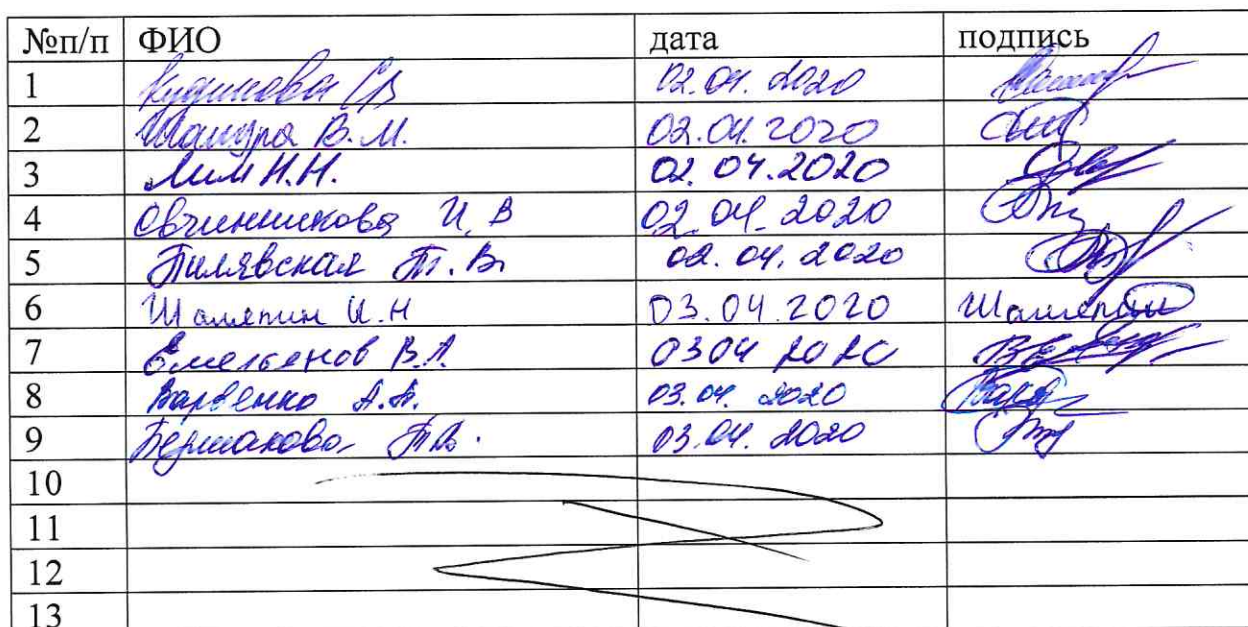 №п/п ФИО дата подпись
1 Кудинова СВ 02.04.2020
2 Шандра В.М. 02.04.2020
3 Лим Н.Н. 02.04.2020
4 Овчинникова И.В 02.04.2020
5 Пилявская Т.В. 02.04.2020
6 Шаляпин И.Н 03.04.2020 Шаляпин
7 Емельенов В.А. 03 04 2020
8 Варвенко А.А. 03.04.2020
9 03.04.2020
10
11
12
13